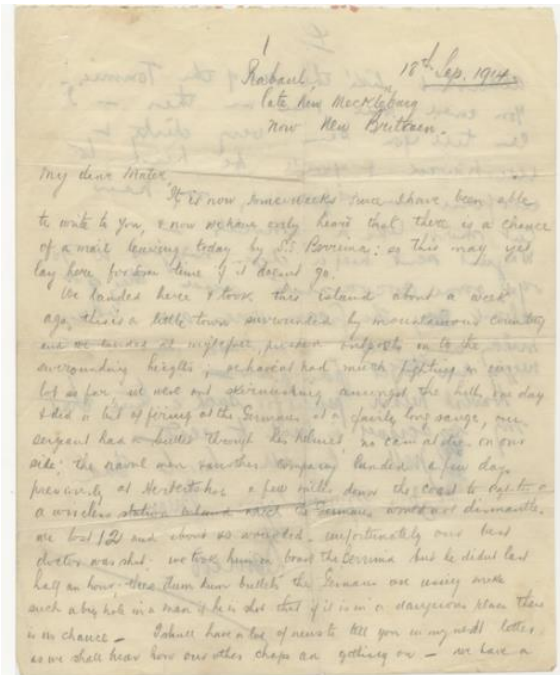 1
Rabaul 18th Sep. 1914.
late New Meckleburg
now New Brittain.
My dear Mater
It is now some weeks since I have been able
to write to you, & now we have only heard that there is a chance
of a mail leaving today by SS Berrima: so this may yet
lay here for some time if it doesnt go.
We landed here & took this island about a week
ago, this is a little town surrounded by mountainous country
and we landed at nightfall, pushed outposts on to the
surrounding heights, we havent had much fighting in our
lot so far we were out skirmishing amongst the hills one day
& did a bit of firing at the Germans at a fairly long range, our
sergeant had a bullet through his helmet no casualties on our
side: the naval men & another company landed a few days
previously at Herbertshohe a few miles down the coast to
a wireless station inland which the Germans would not dismantle.
we lost 12 and about wounded. unfortunately our best
doctor was shot. we took him on board the Berrima but he didnt last
half an hour, these dum dum bullets the Germans are using make
such a big hole in a man if he is shot that if it is in a dangerous place there
is no chance — I shall have a lot of news to tell you in my next letter,
as we shall hear how our other chaps are getting on — we have a